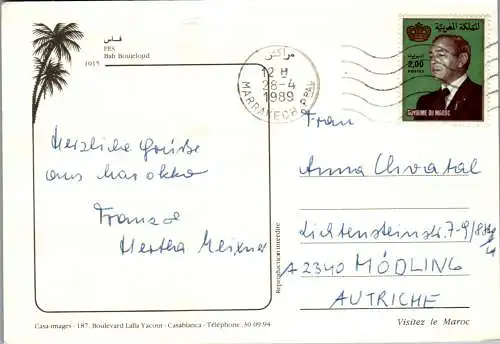 فاس
FES
Bab Boujeloud
1015
مراكش
12 H
28-4
1989
MARRAKECH PPAL
المملكة المغربية
2,00
POSTES
ROYAUME DU MAROC
Herzliche Grüsse
aus Marokko
Franz
Hertha Meixner
Frau
Anna Chvatal
Lichtensteinstr. 7-9/8
A 2340 MÖDLING
AUTRICHE
Reproduction interdite
Casa-images - 187, Boulevard Lalla Yacout - Casablanca - Téléphone : 30.09.94
Visitez le Maroc